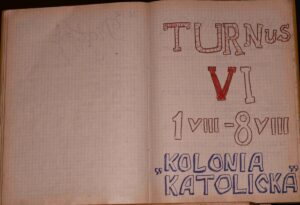 TURNUS
VI
1 VIII-8 VIII
„KOLONIA
KATOLICKA”